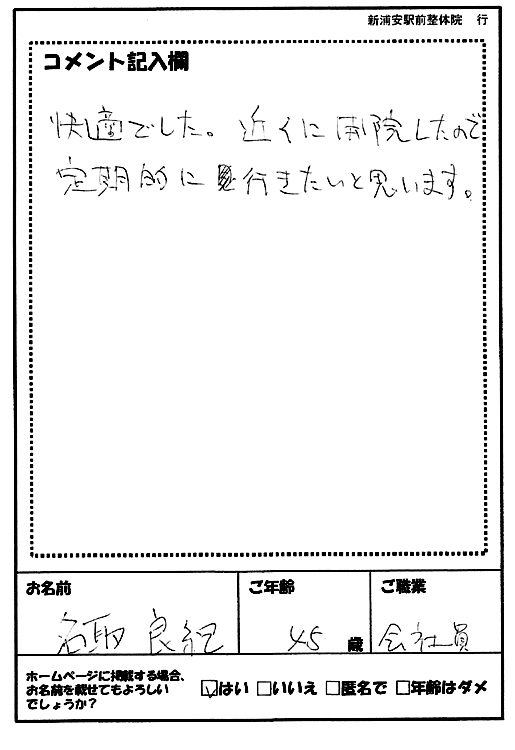 新浦安駅前整体院 行
コメント記入欄
快適でした。近くに開院したので
定期的に行きたいと思います。
お名前
ご年齢
ご職業
名取 良紀
45 歳
会社員
ホームページに掲載する場合、
お名前を載せてもよろしい
でしょうか?
☑はい □いいえ □匿名で □年齢はダメ